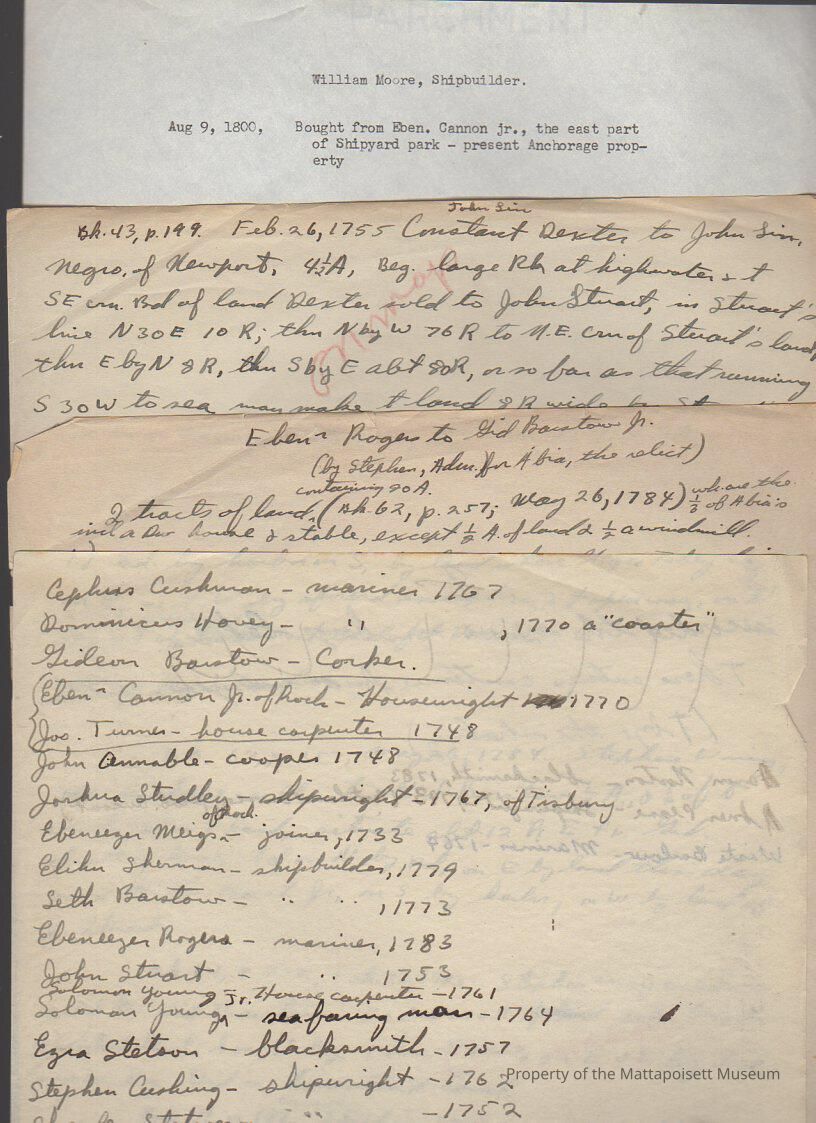 William Moore, Shipbuilder.
Aug 9, 1800, Bought from Eben. Cannon jr., the east part
of Shipyard park - present Anchorage prop-
erty
John Sin
Bk. 43, p. 199. Feb. 26, 1755 Constant Dexter to John Sin,
Negro, of Newport, 4½A, Beg. large Rk at highwater & t
SE crn. Bd of land Dexter sold to John Stuart, in Stuart's
line N30E 10 R; thn N by W 76 R to N.E. crn of Stuart's land
thn E by N 8R, thn S by E abt 80R, or so far as that running
S 30W to sea may make t land 8R wide
Eben r Rogers to Gid Barstow Jr.
(by Stephen, Adm.) for Abia, the relict)
containing 90 A.
2 tracts of land, (Bk. 62, p. 257; May 26, 1784) wh are the
⅓ of Abia's
incl a Dw house & stable, except ½ A. of land & ½ a windmill.
Cephus Cushman - mariner 1767
Dominicus Hovey - '' , 1770 a "coaster"
Gideon Barstow - Corker.
Eben r Cannon Jr. of Roch - Housewright 1770
Jos. Turner - house carpenter 1748
John Annable - cooper 1748
Joshua Studley - shipwright - 1767, of Tisbury
of Roch.
Ebeneezer Meigs - joiner, 1733
Elihu Sherman - shipbuilder, 1779
Seth Barstow - '' '' , 1773
Ebeneezer Rogers - mariner, 1783
John Stuart - '' 1753
Solomon Young Jr. - House carpenter - 1761
Solomon Young - seafaring man - 1764
Ezra Stetson - blacksmith - 1757
Stephen Cushing - shipwright - 1762
Property of the Mattapoisett Museum
'' - 1752